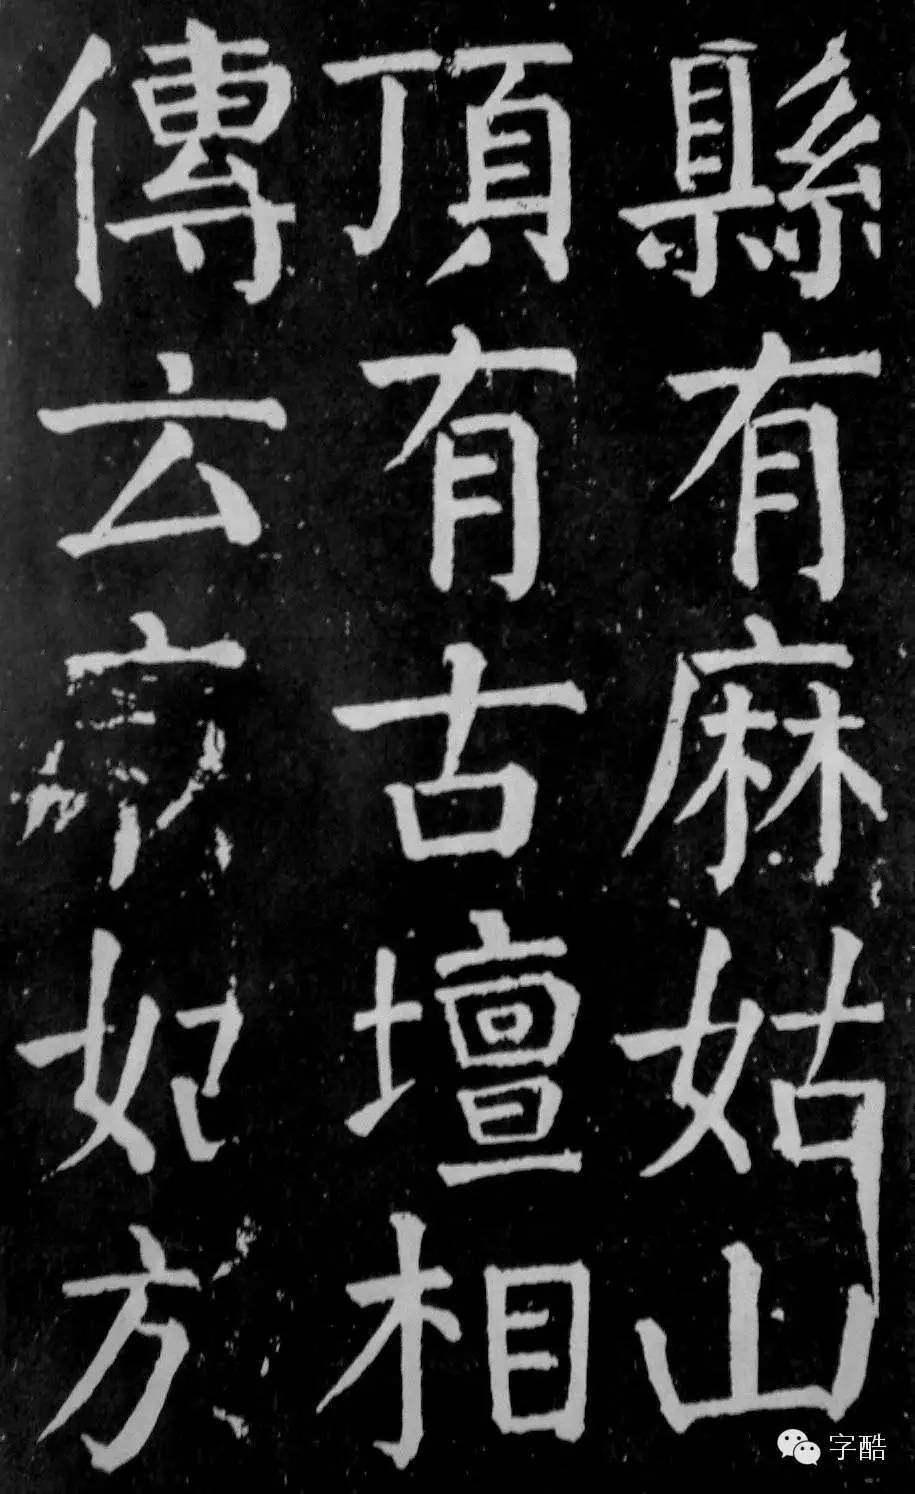 縣有麻姑山
頂有古壇相
傳云
字酷